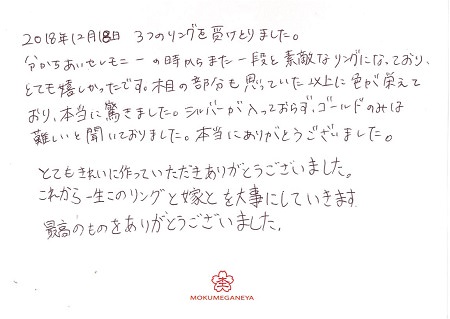 2018年12月18日 3つのリングを受けとりました。
分かちあいセレモニーの時からまた一段と素敵なリングになっており、
とても嬉しかったです。木目の部分も思っていた以上に色が栄えて
おり、本当に驚きました。シルバーが入っておらず、ゴールドのみは
難しいと聞いておりました。本当にありがとうございました。
とてもきれいに作っていただきありがとうございました。
これから一生このリングと嫁とを大事にしていきます
最高のものをありがとうございました。
MOKUMEGANEYA